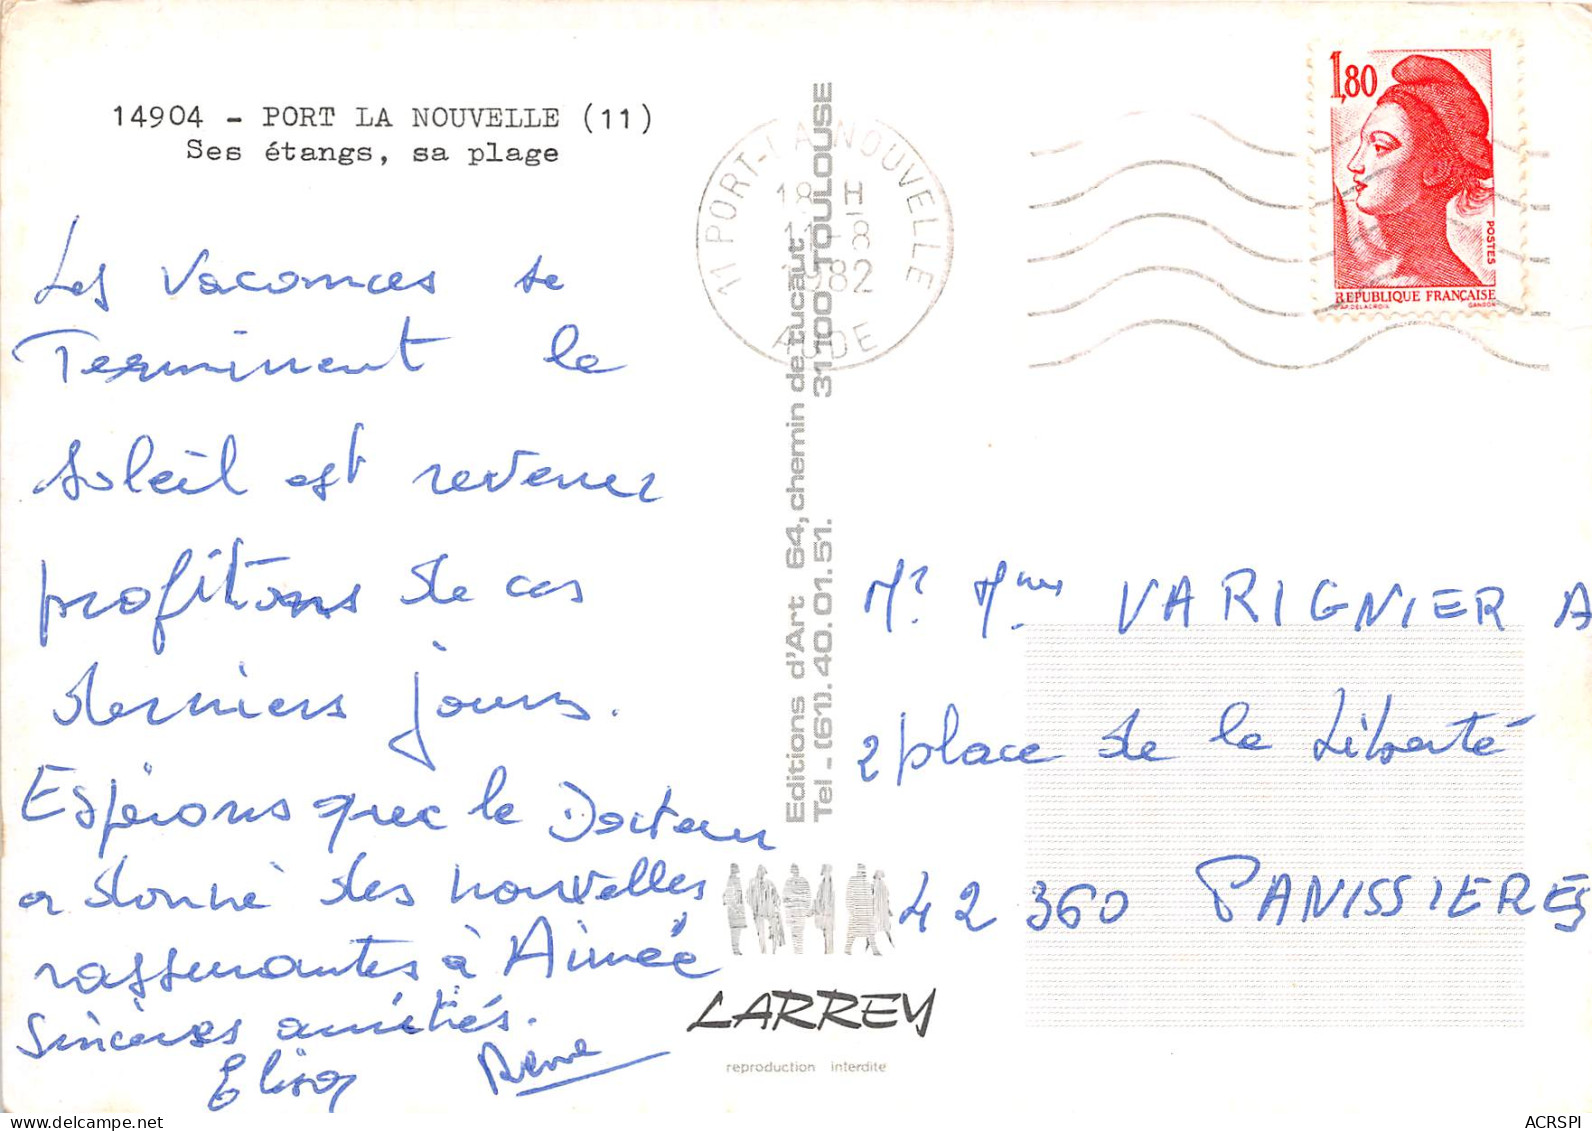 14904 - PORT LA NOUVELLE (11)
Ses étangs, sa plage
Les vacances se
Terminent le
soleil est revenu
profitons de ces
derniers jours.
Espérons que le Docteur
a donné des nouvelles
rassurantes à Aimée
Sincères amitiés.
Elisa René
Editions d'Art 64, chemin de tucaut 31100 TOULOUSE
Tel - (61). 40. 01. 51.
LARREY
reproduction interdite
11 PORT-LA NOUVELLE
18 H
11-8
1982
AUDE
1,80
POSTES
REPUBLIQUE FRANÇAISE
AP. DELACROIX GANDON
Mr Mme VARIGNIER A
2 place de la Liberté
42 360 PANISSIERES
www.delcampe.net
ACRSPI